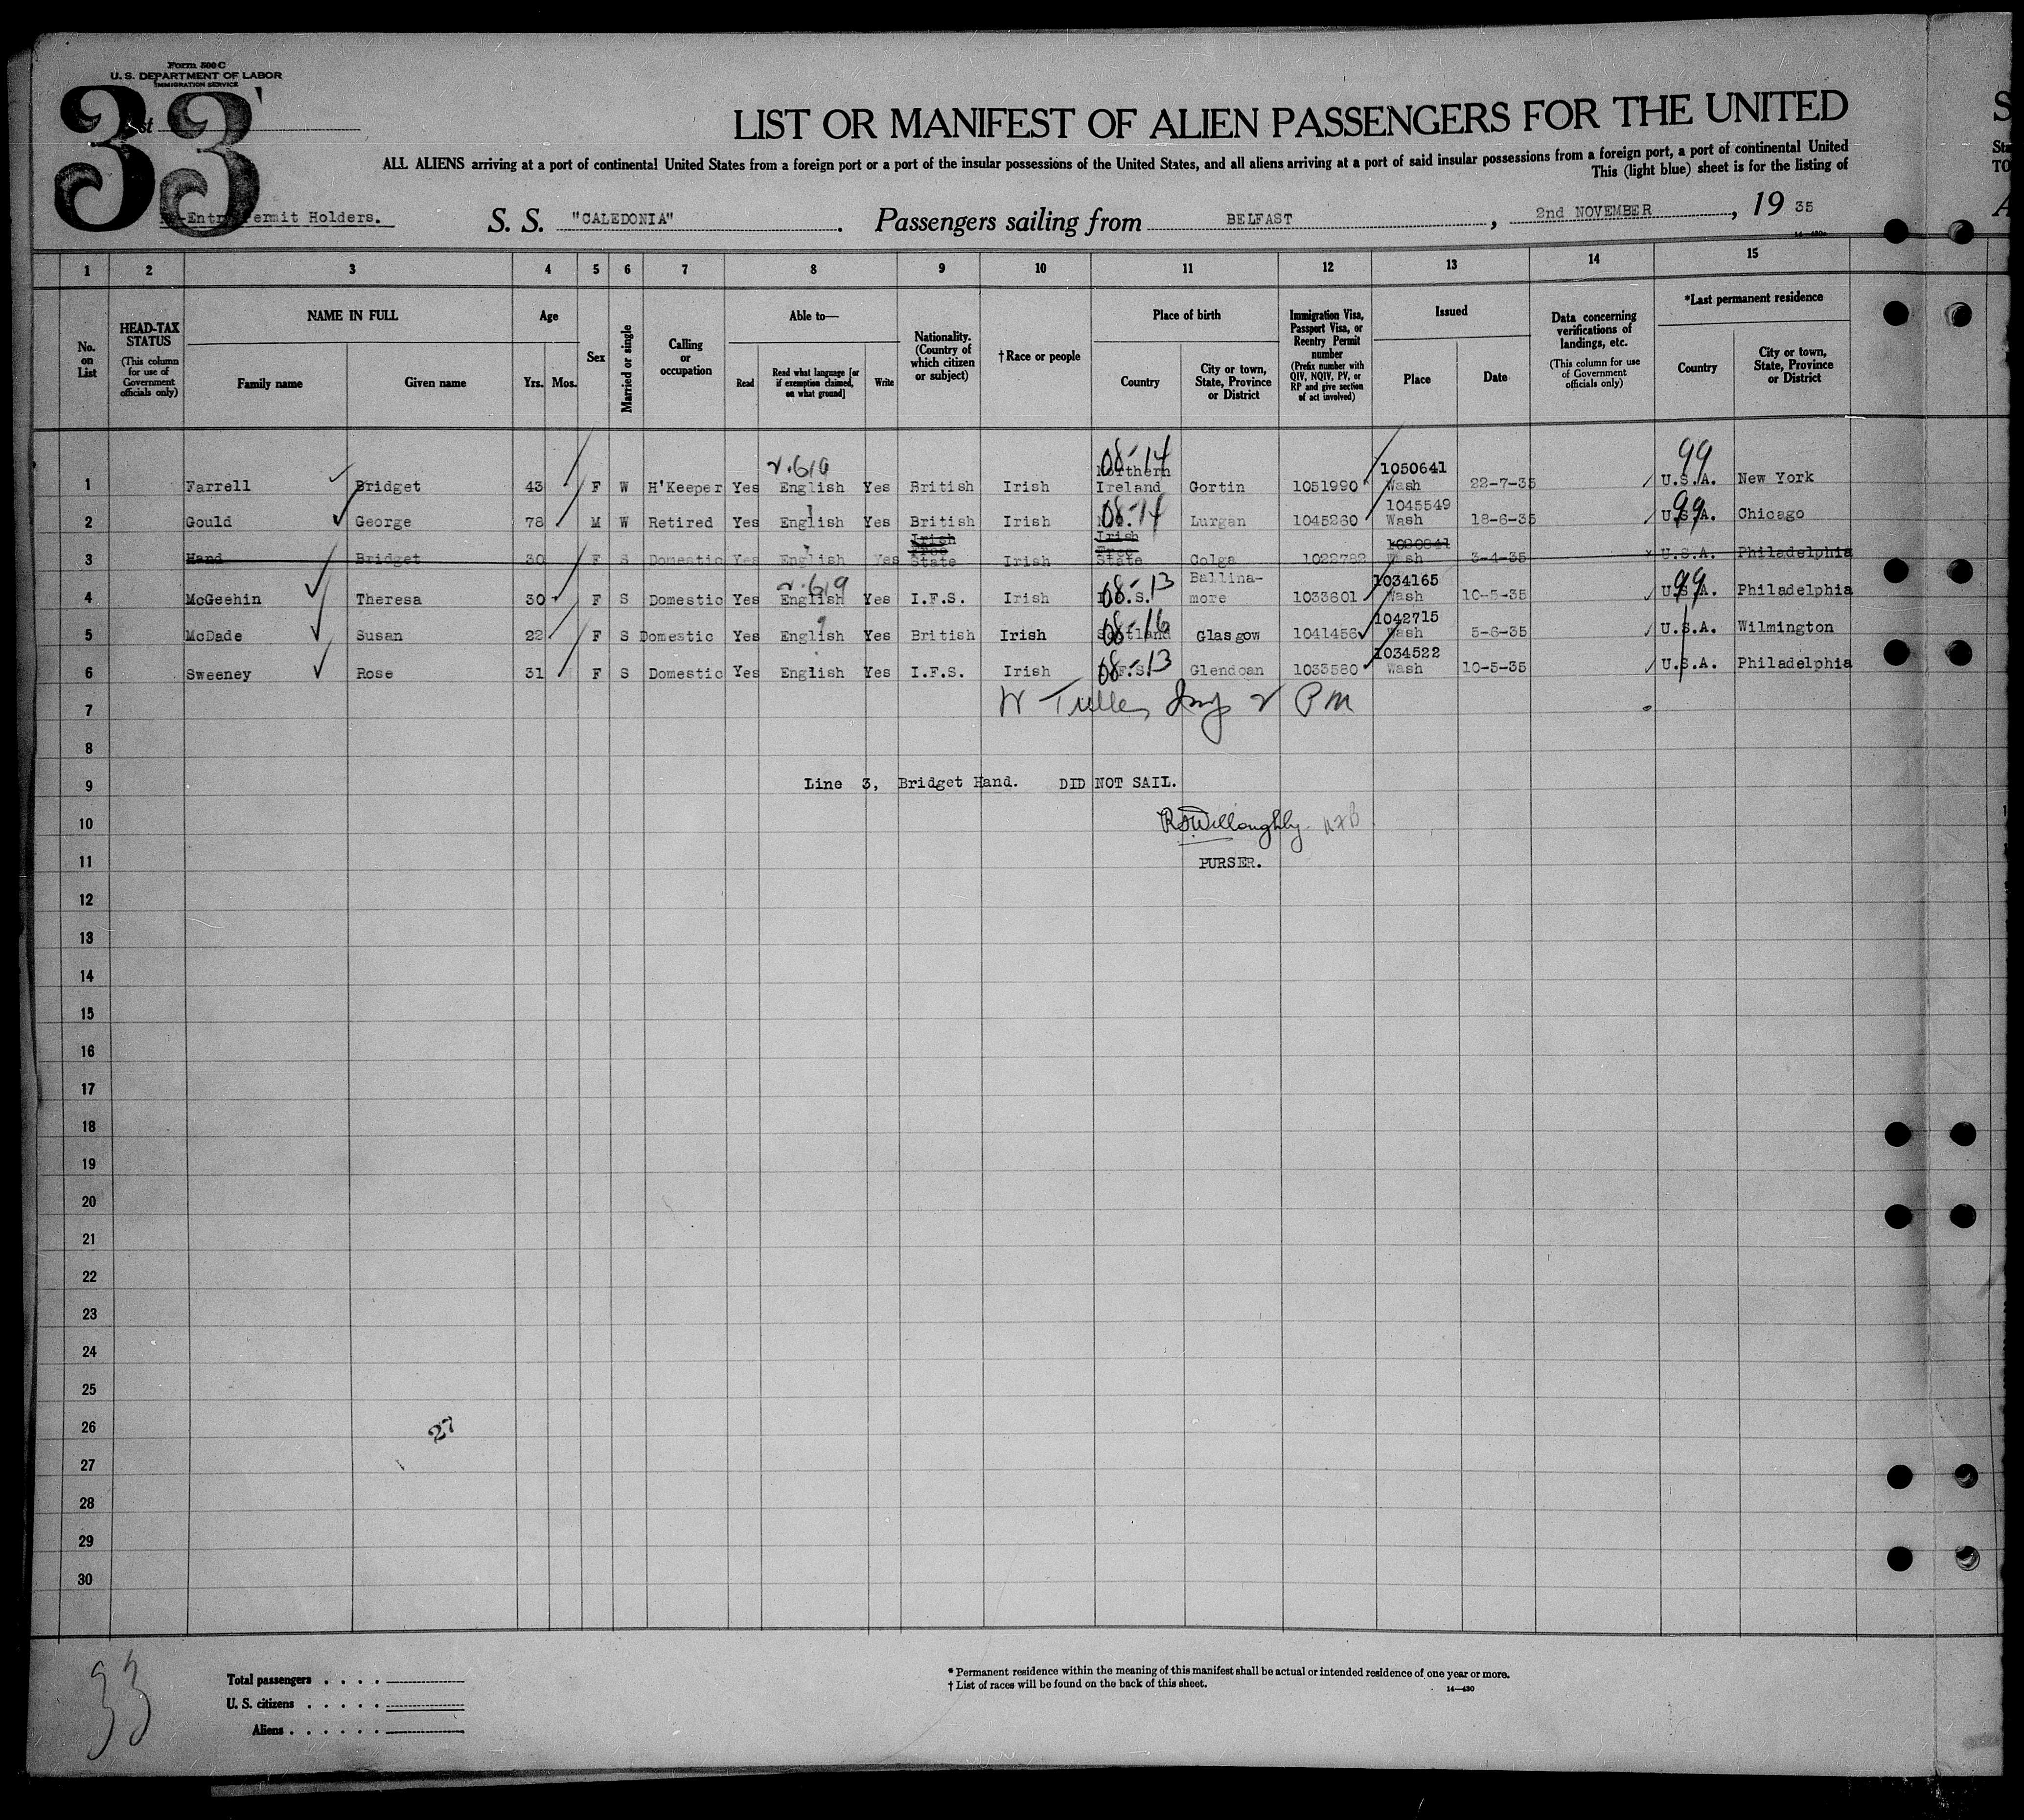 Form 500 C
U. S. DEPARTMENT OF LABOR
IMMIGRATION SERVICE
33
LIST OR MANIFEST OF ALIEN PASSENGERS FOR THE UNITED
ALL ALIENS arriving at a port of continental United States from a foreign port or a port of the insular possessions of the United States, and all aliens arriving at a port of said insular possessions from a foreign port, a port of continental United
This (light blue) sheet is for the listing of
Permit Holders. S. S. "CALEDONIA". Passengers sailing from BELFAST, 2nd NOVEMBER, 19 35
1 2 3 4 5 6 7 8 9 10 11 12 13 14 15
No. on List
HEAD-TAX STATUS (This column for use of Government officials only)
NAME IN FULL Family name Given name
Age Yrs. Mos.
Sex
Married or single
Calling or occupation
Able to— Read Read what language [or if exemption claimed, on what ground] Write
Nationality. (Country of which citizen or subject)
†Race or people
Place of birth Country City or town, State, Province or District
Immigration Visa, Passport Visa, or Reentry Permit number (Prefix number with QIV, NQIV, PV, or RP and give section of act involved)
Issued Place Date
Data concerning verifications of landings, etc. (This column for use of Government officials only)
*Last permanent residence Country City or town, State, Province or District
08-14 1050641 99
1 Farrell Bridget 43 F W H'Keeper Yes English Yes British Irish Northern Ireland Gortin 1051990 Wash 22-7-35 U.S.A. New York
1045549
2 Gould George 78 M W Retired Yes English Yes British Irish 08-14 Lurgan 1045260 Wash 18-6-35 U.S.A. 99 Chicago
3 Hand Bridget 30 F S Domestic Yes English Yes Irish Free State Irish Irish Free State Colga 1022782 Wash 3-4-35 U.S.A. Philadelphia
1034165
4 McGeehin Theresa 30 F S Domestic Yes English Yes I.F.S. Irish 08-13 Ballina-more 1033601 Wash 10-5-35 U.S.A. 99 Philadelphia
1042715
5 McDade Susan 22 F S Domestic Yes English Yes British Irish Scotland 08-16 Glasgow 1041456 Wash 5-6-35 U.S.A. Wilmington
1034522
6 Sweeney Rose 31 F S Domestic Yes English Yes I.F.S. Irish I.F.S. 08-13 Glendoan 1033580 Wash 10-5-35 U.S.A. Philadelphia
7
8
9 Line 3, Bridget Hand. DID NOT SAIL.
10 Willoughby
11 PURSER.
12
13
14
15
16
17
18
19
20
21
22
23
24
25
26 27
27
28
29
30
33
Total passengers . . . .
U. S. citizens . . . . .
Aliens . . . . . .
* Permanent residence within the meaning of this manifest shall be actual or intended residence of one year or more.
† List of races will be found on the back of this sheet.
14—430